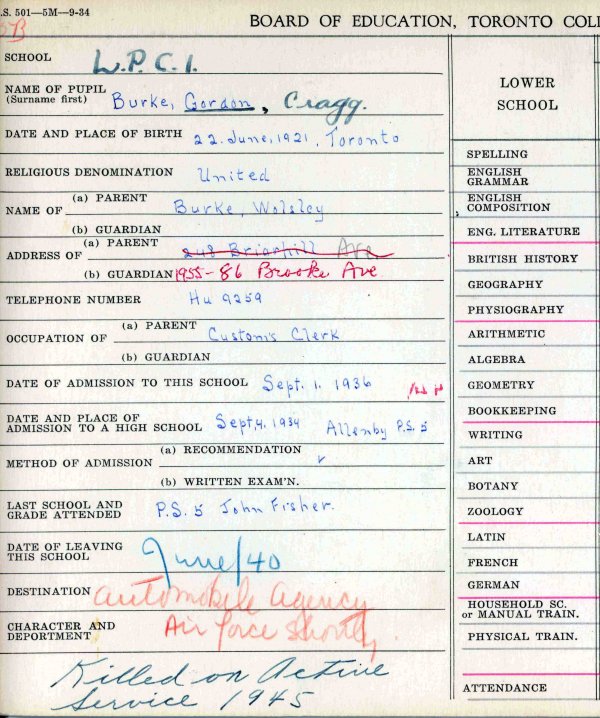 .S. 501—5M—9-34
5B
BOARD OF EDUCATION, TORONTO COLL
SCHOOL L.P.C.I.
NAME OF PUPIL Burke, Gordon, Cragg.
(Surname first)
DATE AND PLACE OF BIRTH 22 June, 1921, Toronto
RELIGIOUS DENOMINATION United
NAME OF (a) PARENT Burke, Wolsley
(b) GUARDIAN
ADDRESS OF (a) PARENT 248 Briarhill Ave
(b) GUARDIAN 1955-86 Brooke Ave
TELEPHONE NUMBER Hu 9259
OCCUPATION OF (a) PARENT Customs Clerk
(b) GUARDIAN
DATE OF ADMISSION TO THIS SCHOOL Sept. 1. 1936
DATE AND PLACE OF
ADMISSION TO A HIGH SCHOOL Sept, 4. 1934 Allenby P.S. 5
METHOD OF ADMISSION (a) RECOMMENDATION ✓
(b) WRITTEN EXAM'N.
LAST SCHOOL AND
GRADE ATTENDED P.S. 5 John Fisher.
DATE OF LEAVING
THIS SCHOOL June/40
DESTINATION automobile agency
CHARACTER AND
DEPORTMENT Air force shortly.
Killed on Active
Service 1945
LOWER
SCHOOL
SPELLING
ENGLISH
GRAMMAR
ENGLISH
COMPOSITION
ENG. LITERATURE
BRITISH HISTORY
GEOGRAPHY
PHYSIOGRAPHY
ARITHMETIC
ALGEBRA
GEOMETRY
BOOKKEEPING
WRITING
ART
BOTANY
ZOOLOGY
LATIN
FRENCH
GERMAN
HOUSEHOLD SC.
or MANUAL TRAIN.
PHYSICAL TRAIN.
ATTENDANCE